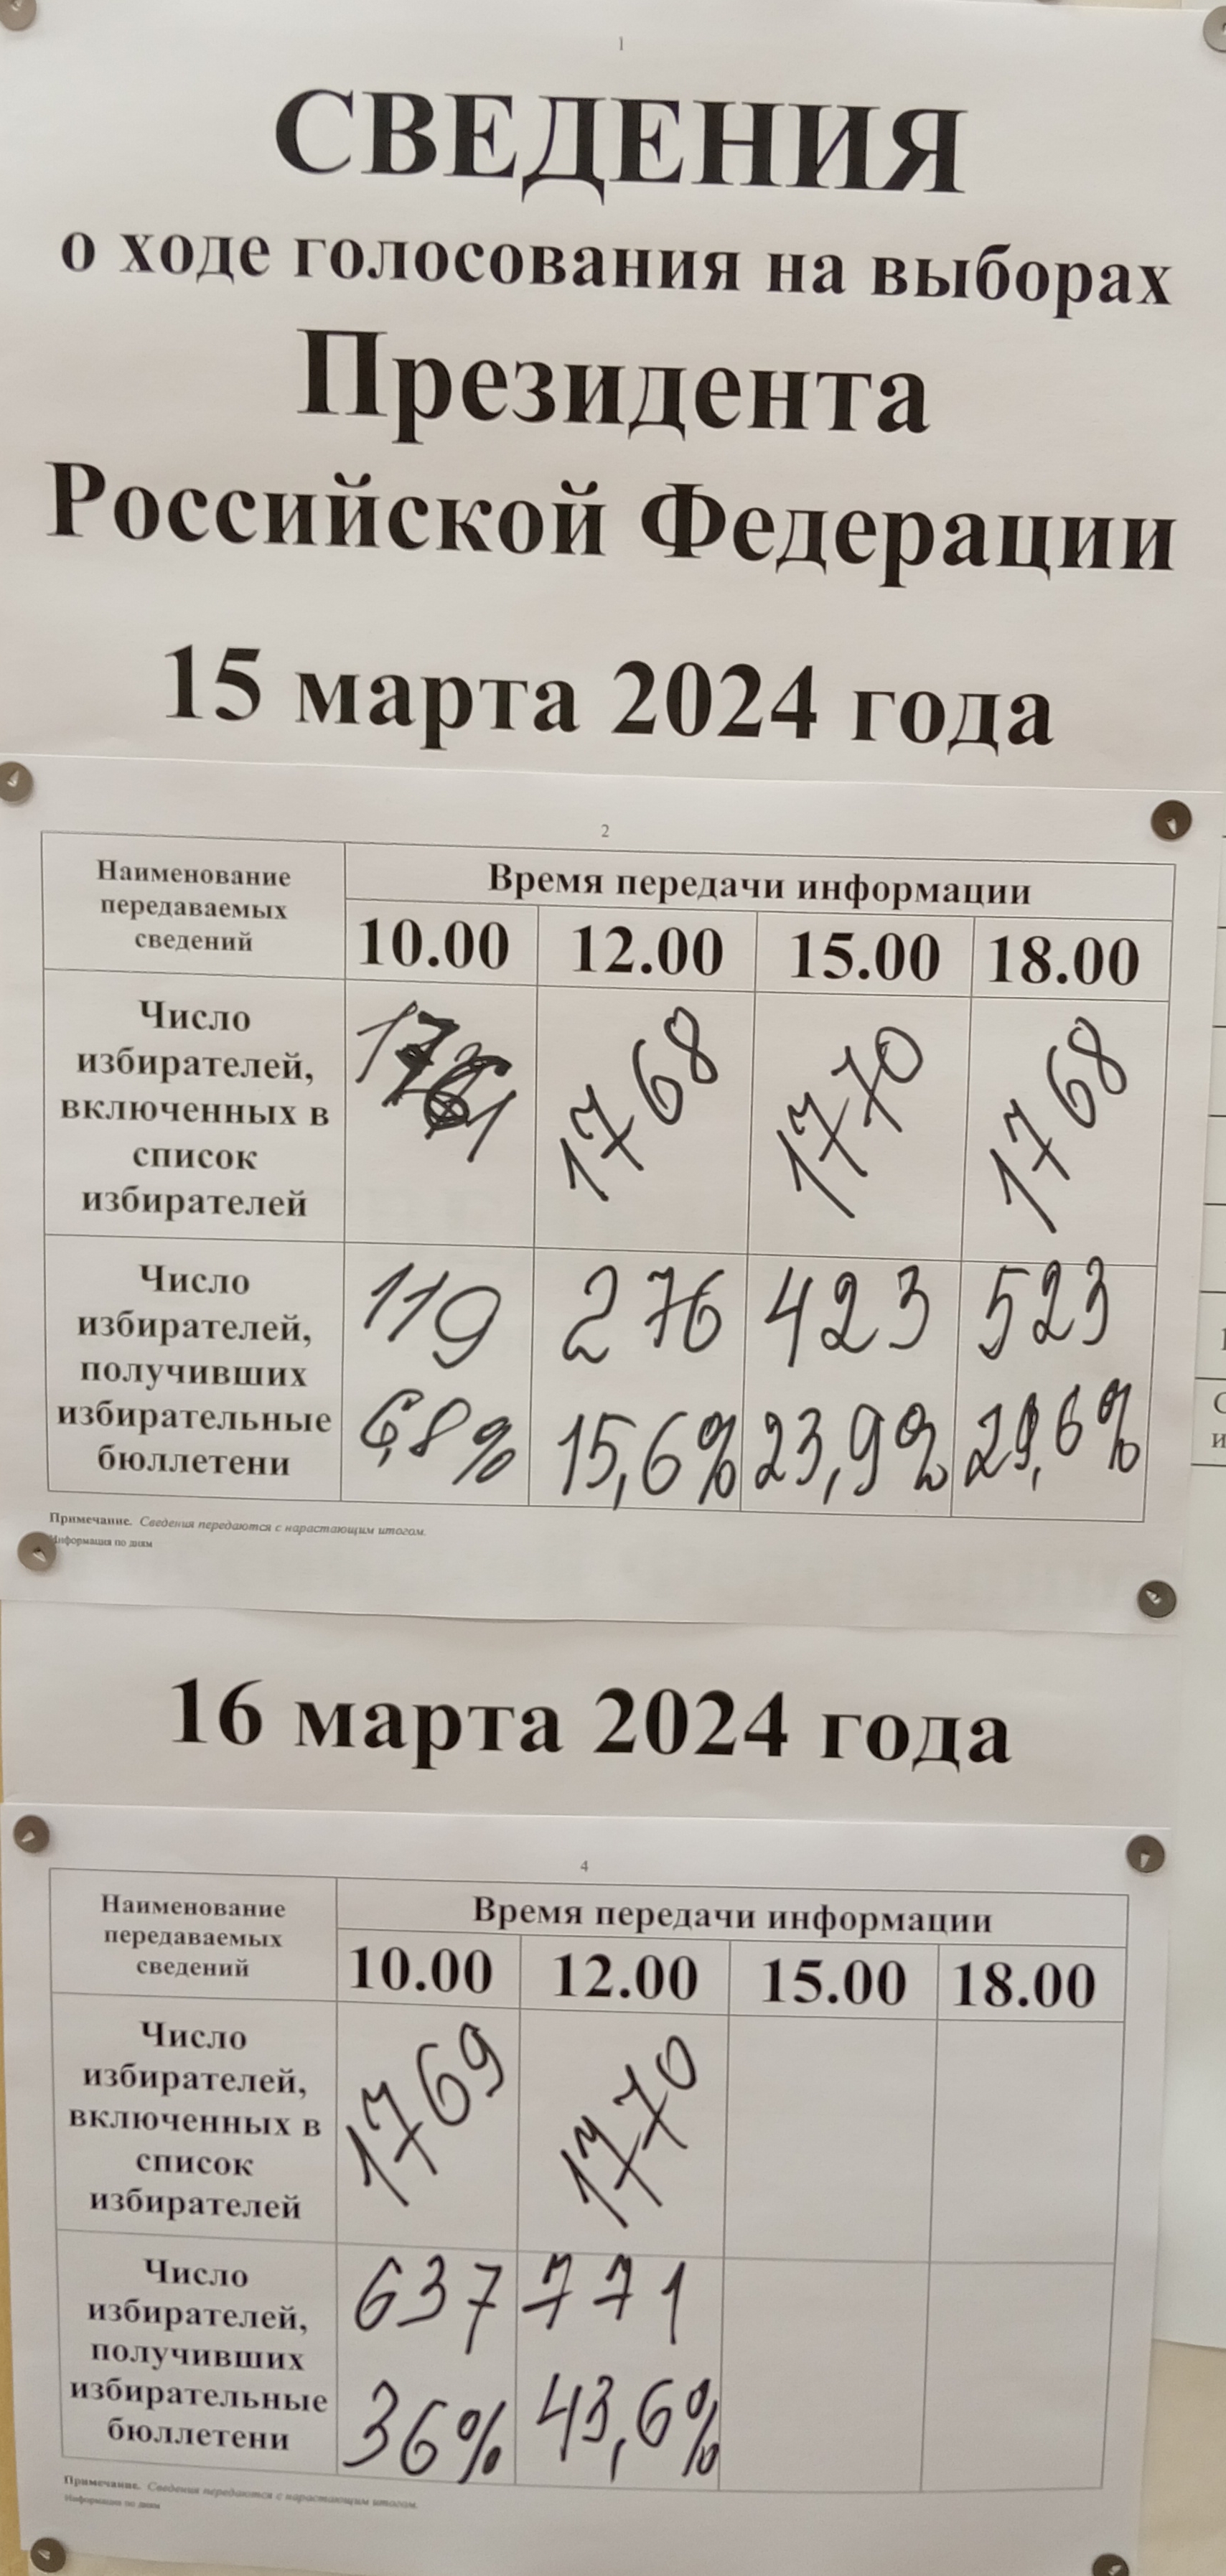 1
СВЕДЕНИЯ
о ходе голосования на выборах
Президента
Российской Федерации
15 марта 2024 года
2
Наименование
передаваемых
сведений
Время передачи информации
10.00 12.00 15.00 18.00
Число
избирателей,
включенных в
список
избирателей
1768 1770 1768
Число
избирателей,
получивших
избирательные
бюллетени
119 276 423 523
6,8% 15,6% 23,9% 29,6%
Примечание. Сведения передаются с нарастающим итогом.
Информация по дням
16 марта 2024 года
4
Наименование
передаваемых
сведений
Время передачи информации
10.00 12.00 15.00 18.00
Число
избирателей,
включенных в
список
избирателей
1769 1770
Число
избирателей,
получивших
избирательные
бюллетени
637 771
36% 43,6%
Примечание. Сведения передаются с нарастающим итогом.
Информация по дням